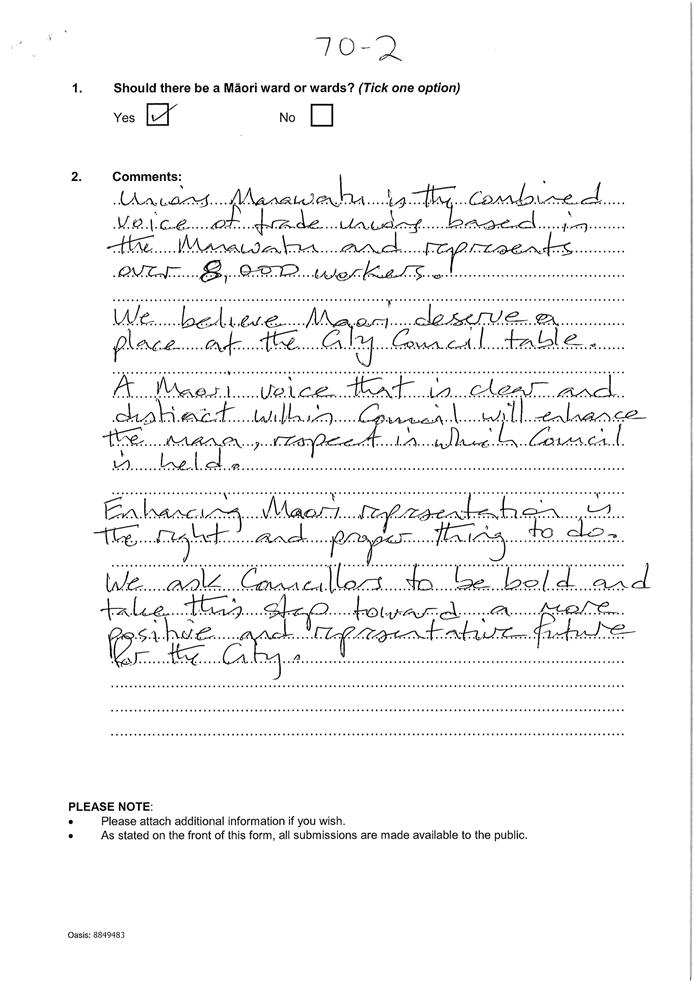 70-2
1. Should there be a Māori ward or wards? (Tick one option)
Yes No
2. Comments:
Unions Manawatu is the combined
voice of trade unions based in
the Manawatu and represents
over 8,000 workers.
We believe Maori deserve a
place at the City Council table.
A Maori voice that is clear and
distinct within Council will enhance
the mana, respect in which Council
is held.
Enhancing Maori representation is
the right and proper thing to do.
We ask Councillors to be bold and
take this step toward a more
positive and representative future
for the City.
PLEASE NOTE:
• Please attach additional information if you wish.
• As stated on the front of this form, all submissions are made available to the public.
Oasis: 8849483